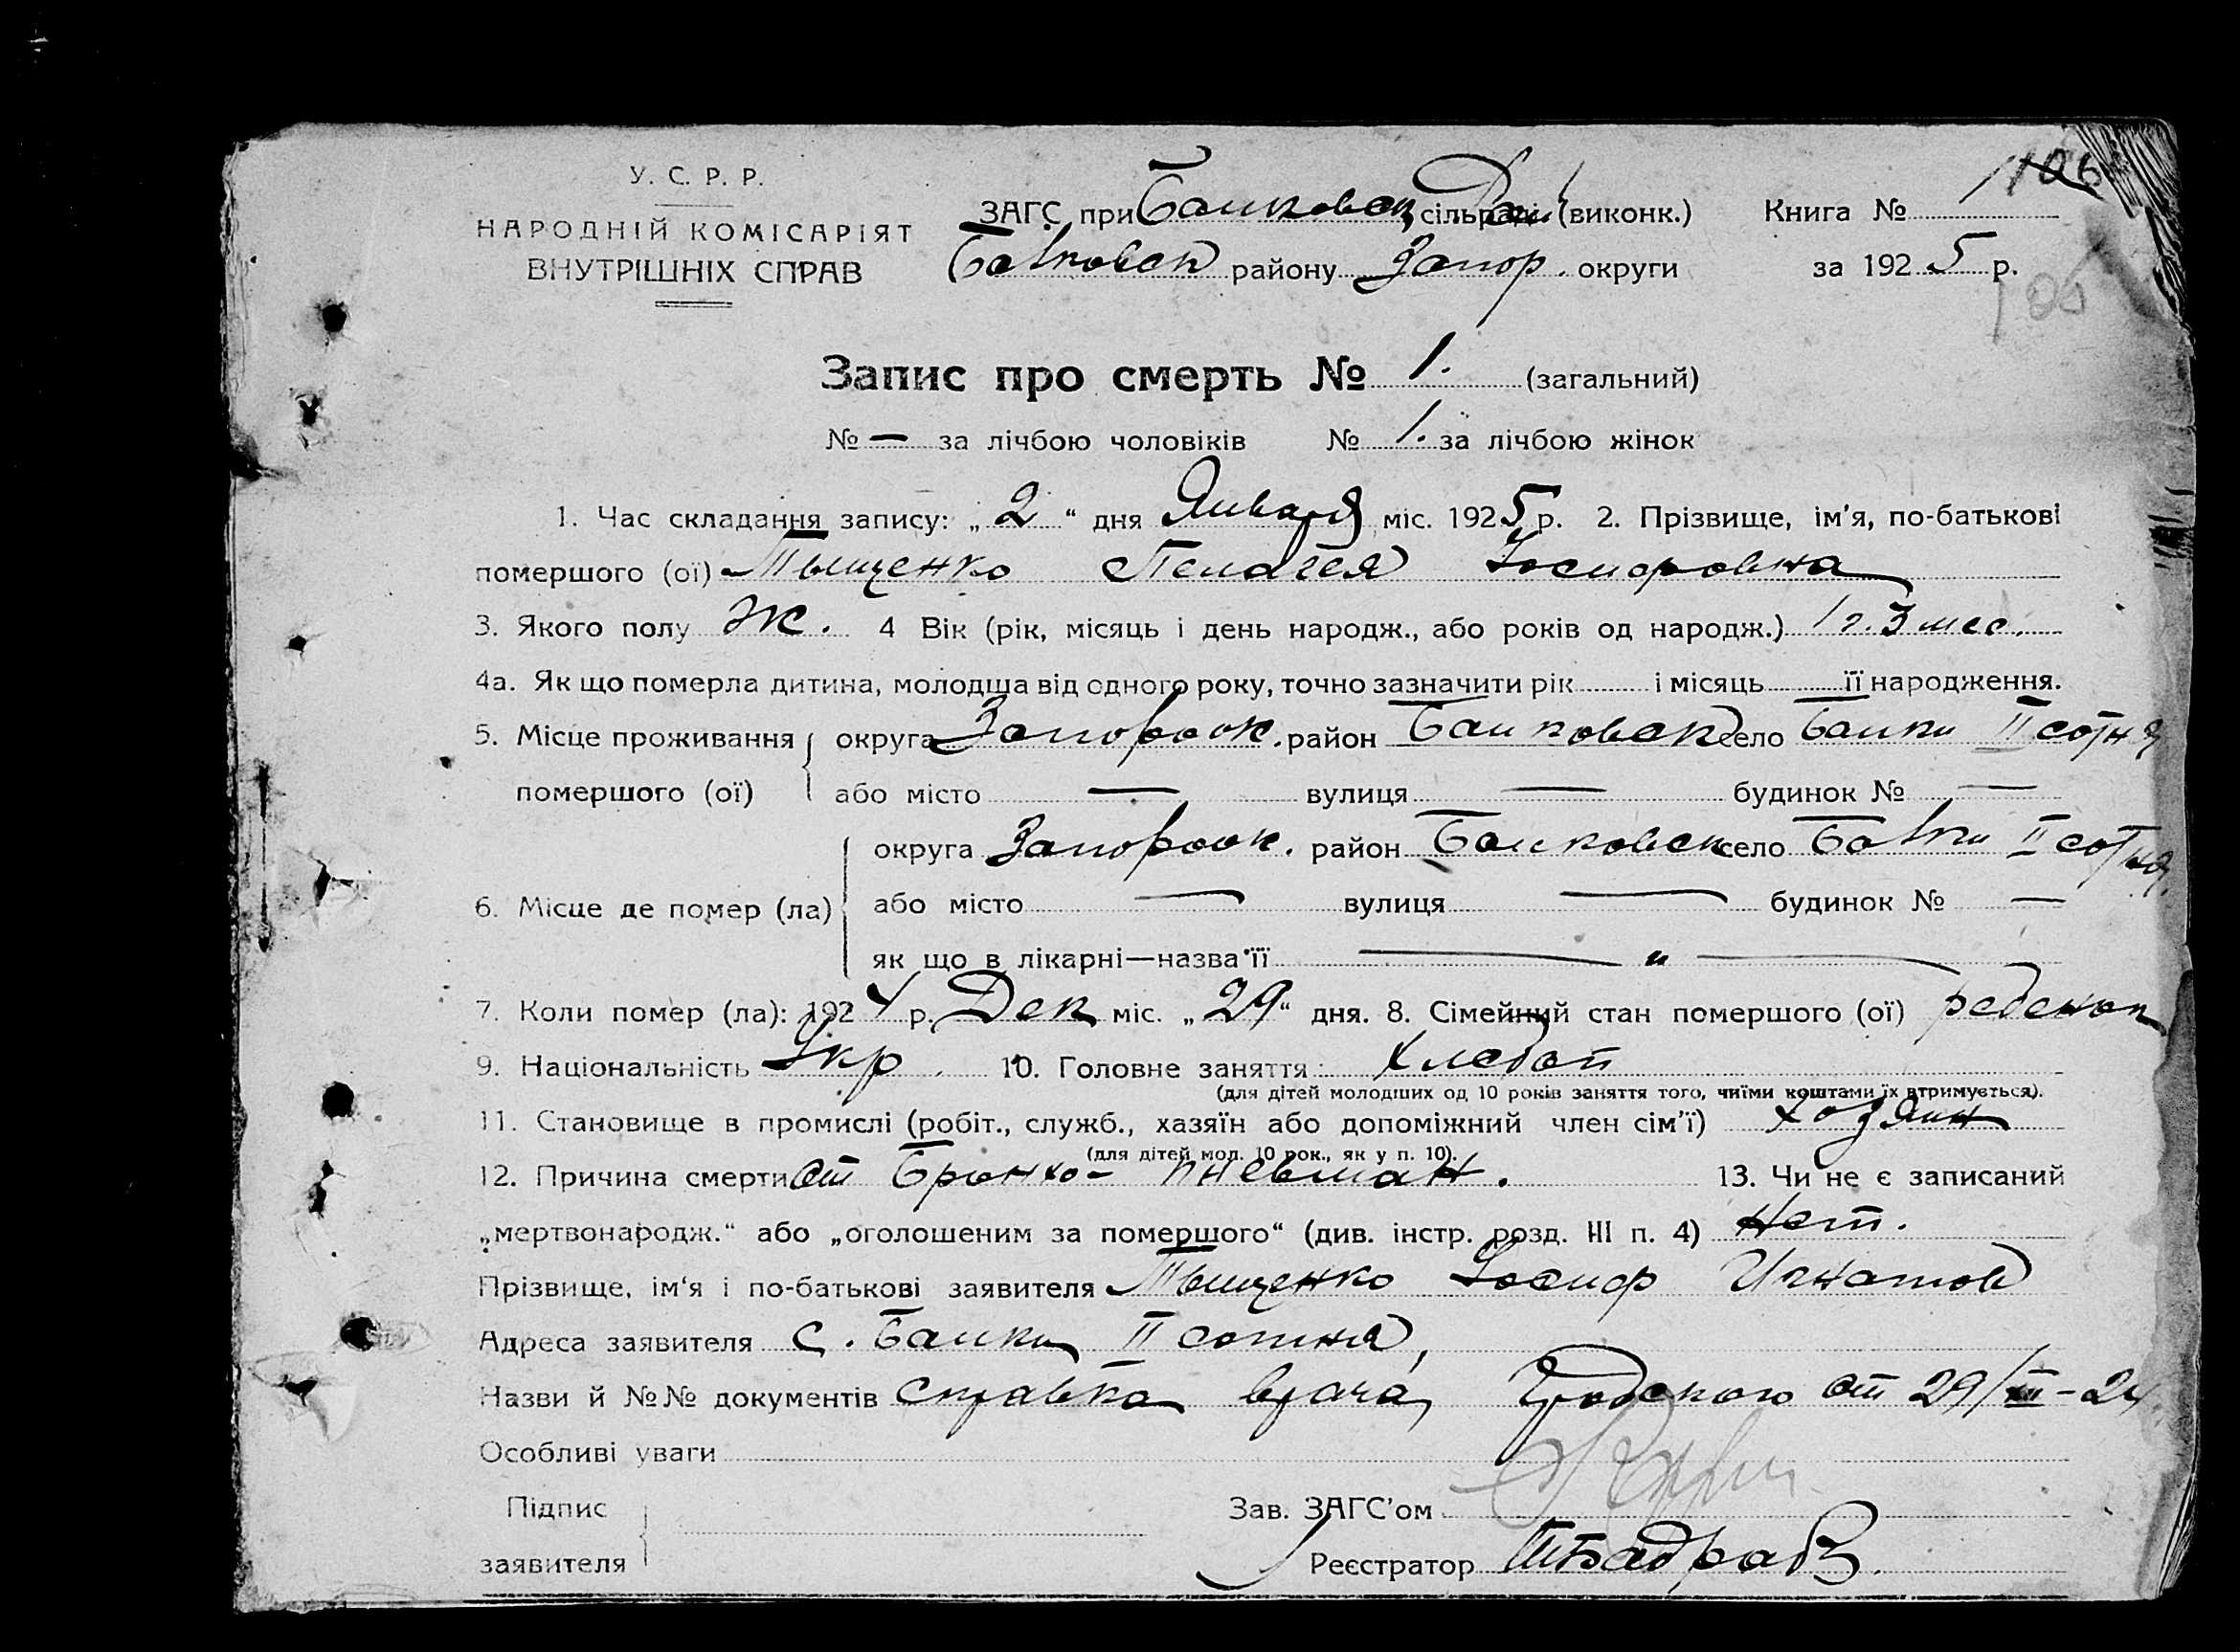 У. С. Р. Р.
НАРОДНІЙ КОМІСАРІЯТ
ВНУТРІШНІХ СПРАВ
ЗАГС при Балковск сільраді (виконк.) Книга №
Балковск району Запор. округи за 1925 р.
Запис про смерть № 1. (загальний)
№ — за лічбою чоловіків № 1. за лічбою жінок
1. Час складання запису: „2“ дня Января міс. 1925 р. 2. Прізвище, ім'я, по-батькові
помершого (ої) Тыщенко Пелагея Иосифовна
3. Якого полу Ж. 4 Вік (рік, місяць і день народж., або років од народж.) 1 г. 3 мес.
4а. Як що померла дитина, молодша від одного року, точно зазначити рік і місяць її народження.
5. Місце проживання округа Запорож. район Балковск село Балки II сотня
помершого (ої) або місто — вулиця — будинок № —
округа Запорож. район Балковск село Балки II сотня
6. Місце де помер (ла) або місто — вулиця — будинок № —
як що в лікарні—назва її — „ —
7. Коли помер (ла): 1924 р. Дек міс. „29“ дня. 8. Сімейний стан помершого (ої) ребенок
9. Національність Укр. 10. Головне заняття: хлебоп
(для дітей молодших од 10 років заняття того, чиїми коштами їх втримується).
11. Становище в промислі (робіт., служб., хазяїн або допоміжний член сім'ї) хозяин
(для дітей мол. 10 рок., як у п. 10).
12. Причина смерти от Бронхо-пневман. 13. Чи не є записаний
„мертвонародж.“ або „оголошеним за помершого“ (див. інстр. розд. III п. 4) Нет.
Прізвище, ім'я і по-батькові заявителя Тыщенко Иосиф Игнатов
Адреса заявителя с. Балки II сотня,
Назви й №№ документів справка врача от 29/XII-24
Особливі уваги
Підпис Зав. ЗАГС'ом
заявителя Реєстратор